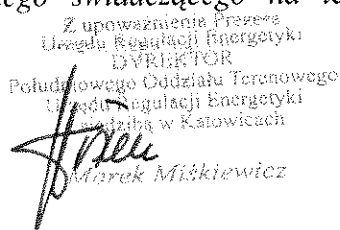 nego świadczącego na te
Z upoważnienia Prezesa
Urzędu Regulacji Energetyki
DYREKTOR
Południowego Oddziału Terenowego
Urzędu Regulacji Energetyki
siedzibą w Katowicach
Marek Miśkiewicz